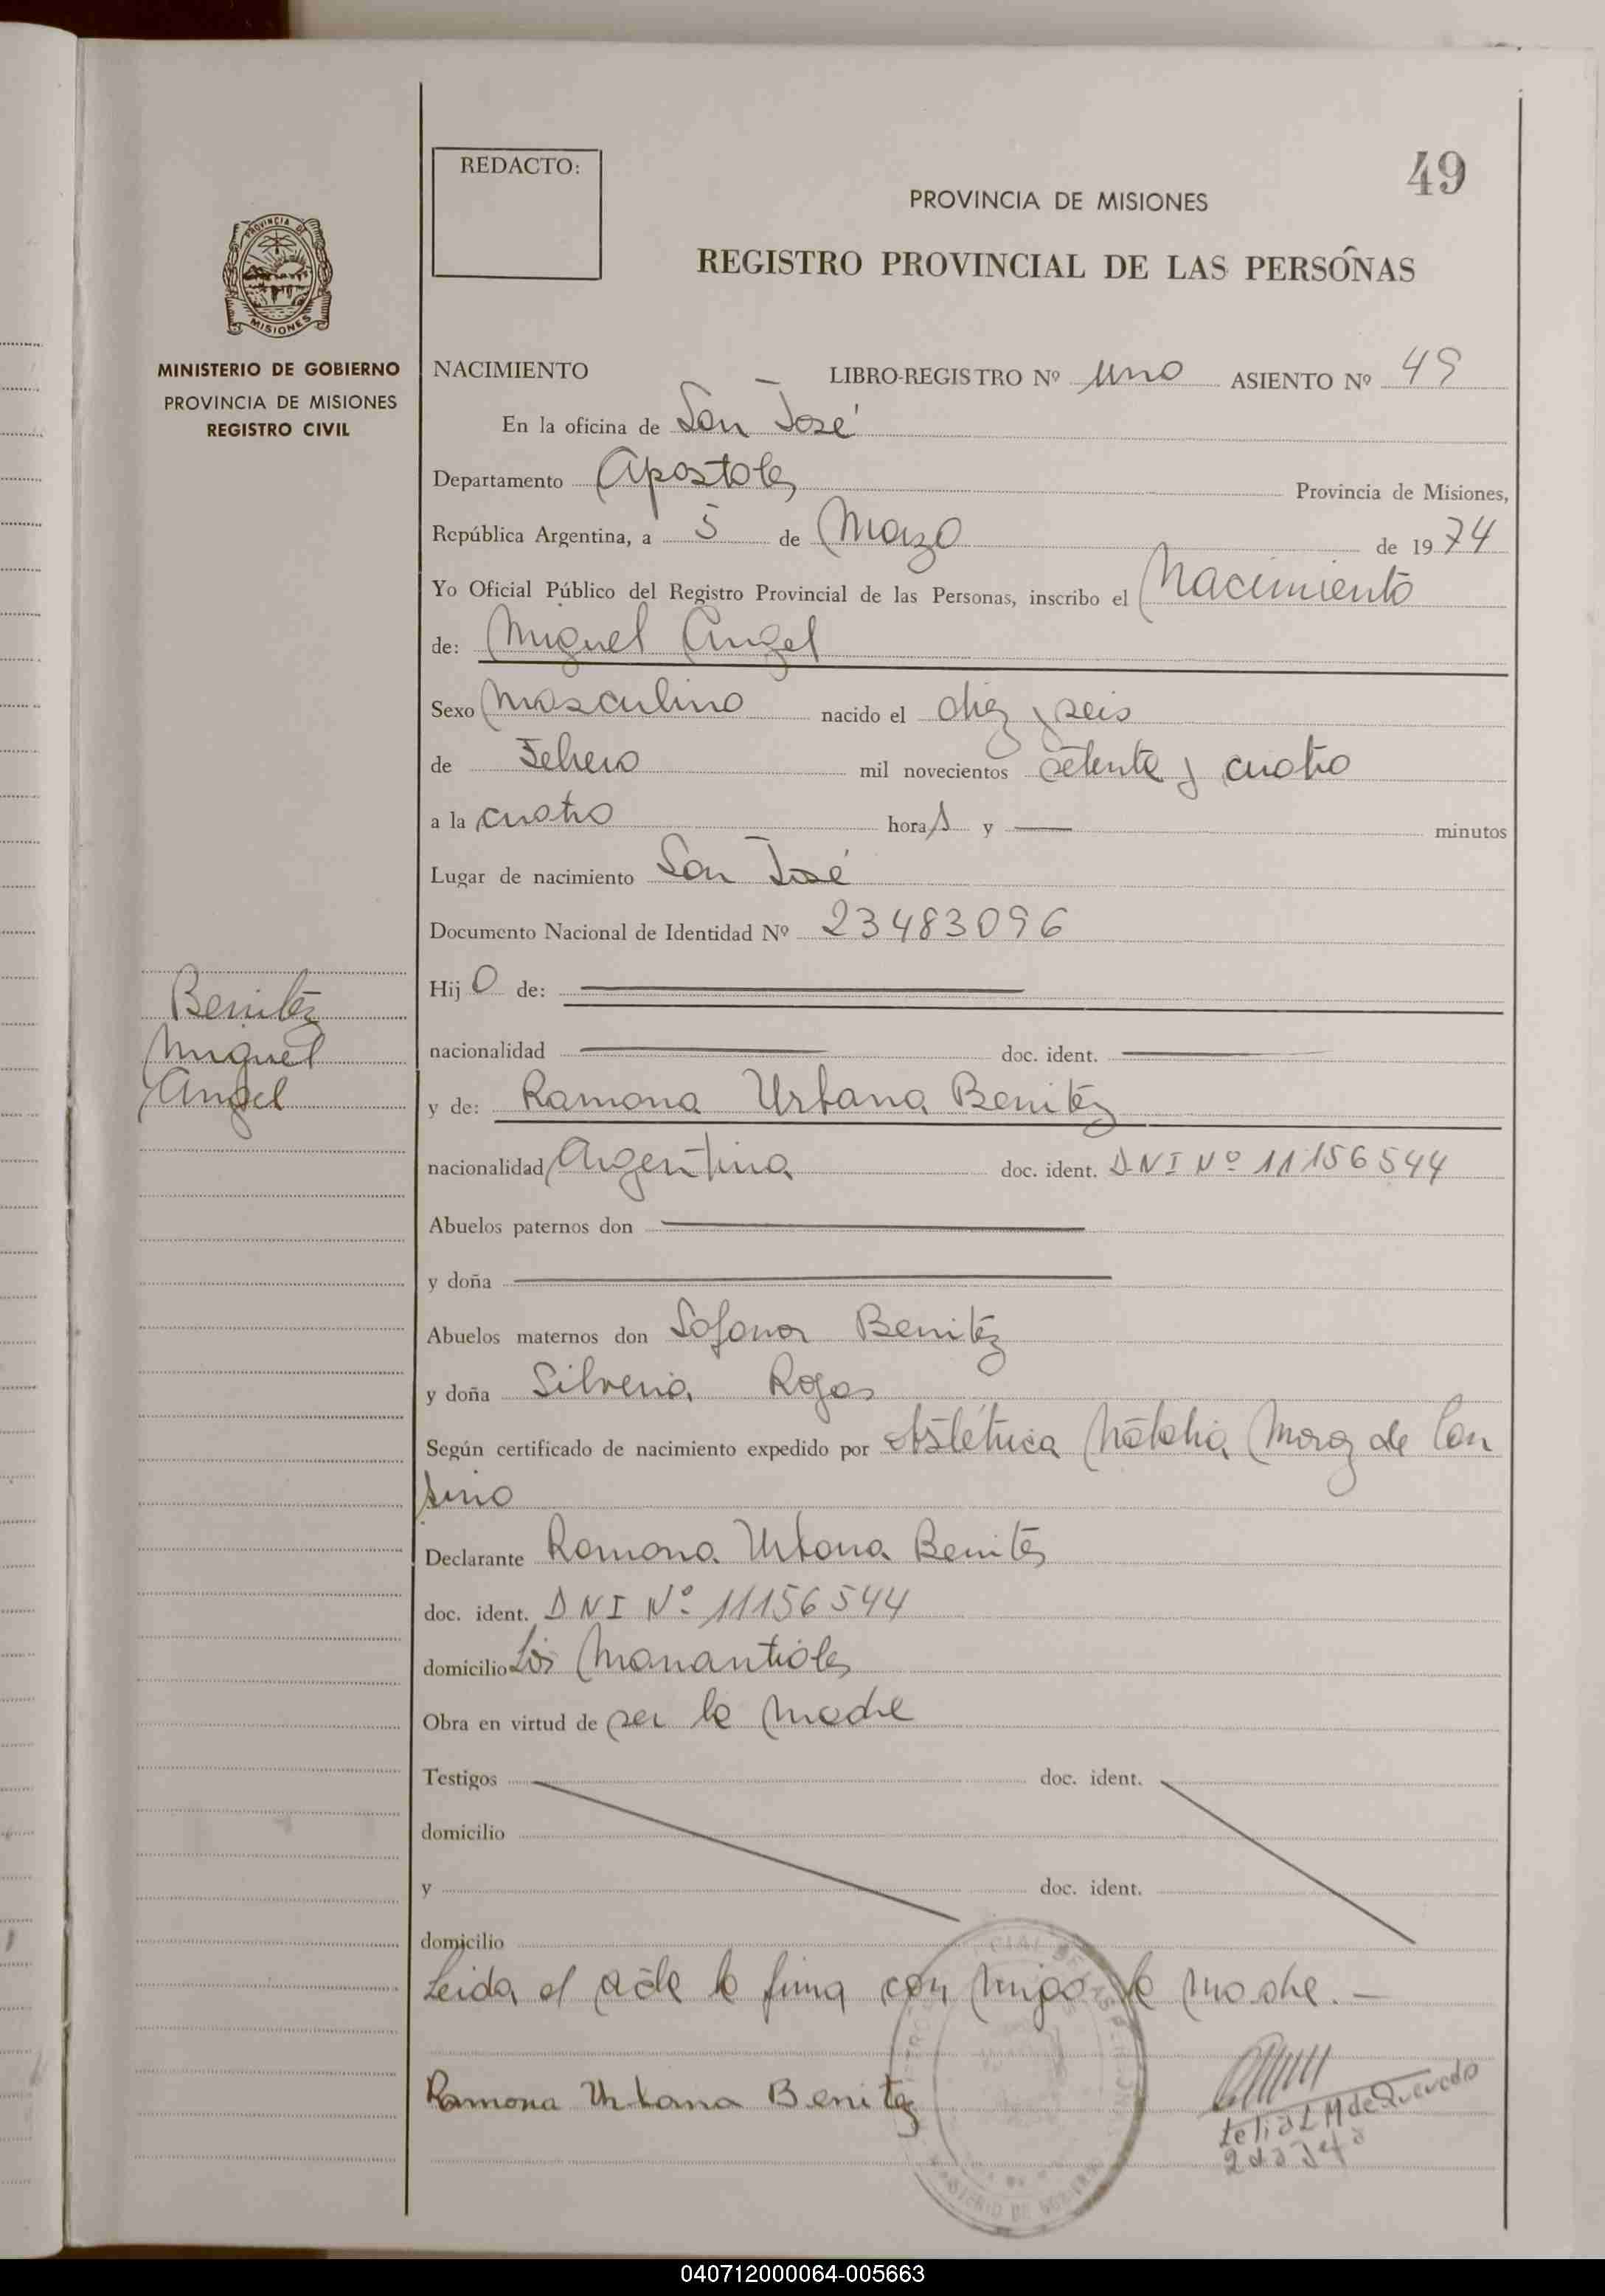 REDACTO:
49
PROVINCIA DE MISIONES
REGISTRO PROVINCIAL DE LAS PERSONAS
PROVINCIA DE
MISIONES
MINISTERIO DE GOBIERNO
PROVINCIA DE MISIONES
REGISTRO CIVIL
NACIMIENTO LIBRO-REGISTRO Nº uno ASIENTO Nº 49
En la oficina de San José
Departamento Apostoles Provincia de Misiones,
República Argentina, a 5 de Marzo de 1974
Yo Oficial Público del Registro Provincial de las Personas, inscribo el Nacimiento
de: Miguel Angel
Sexo Masculino nacido el diez y seis
de Febrero mil novecientos setenta y cuatro
a la cuatro horas y — minutos
Lugar de nacimiento San José
Documento Nacional de Identidad Nº 23483096
Hijo de: —
nacionalidad — doc. ident. —
Benitez
Miguel
Angel
y de: Ramona Urbana Benitez
nacionalidad Argentina doc. ident. DNI Nº 11156544
Abuelos paternos don —
y doña —
Abuelos maternos don Benitez
y doña Silveria Rojas
Según certificado de nacimiento expedido por obstétrica Natalia Moroz de Can
Declarante Ramona Urbana Benitez
doc. ident. DNI Nº 11156544
domicilio Los Manantiales
Obra en virtud de ser la madre
Testigos doc. ident.
domicilio
y doc. ident.
domicilio
Leida el acta la firma con migo la madre. —
Ramona Urbana Benitez
de Quevedo
040712000064-005663